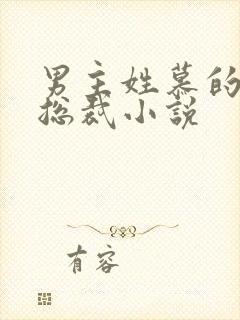 男主姓慕的
总裁小说
有容